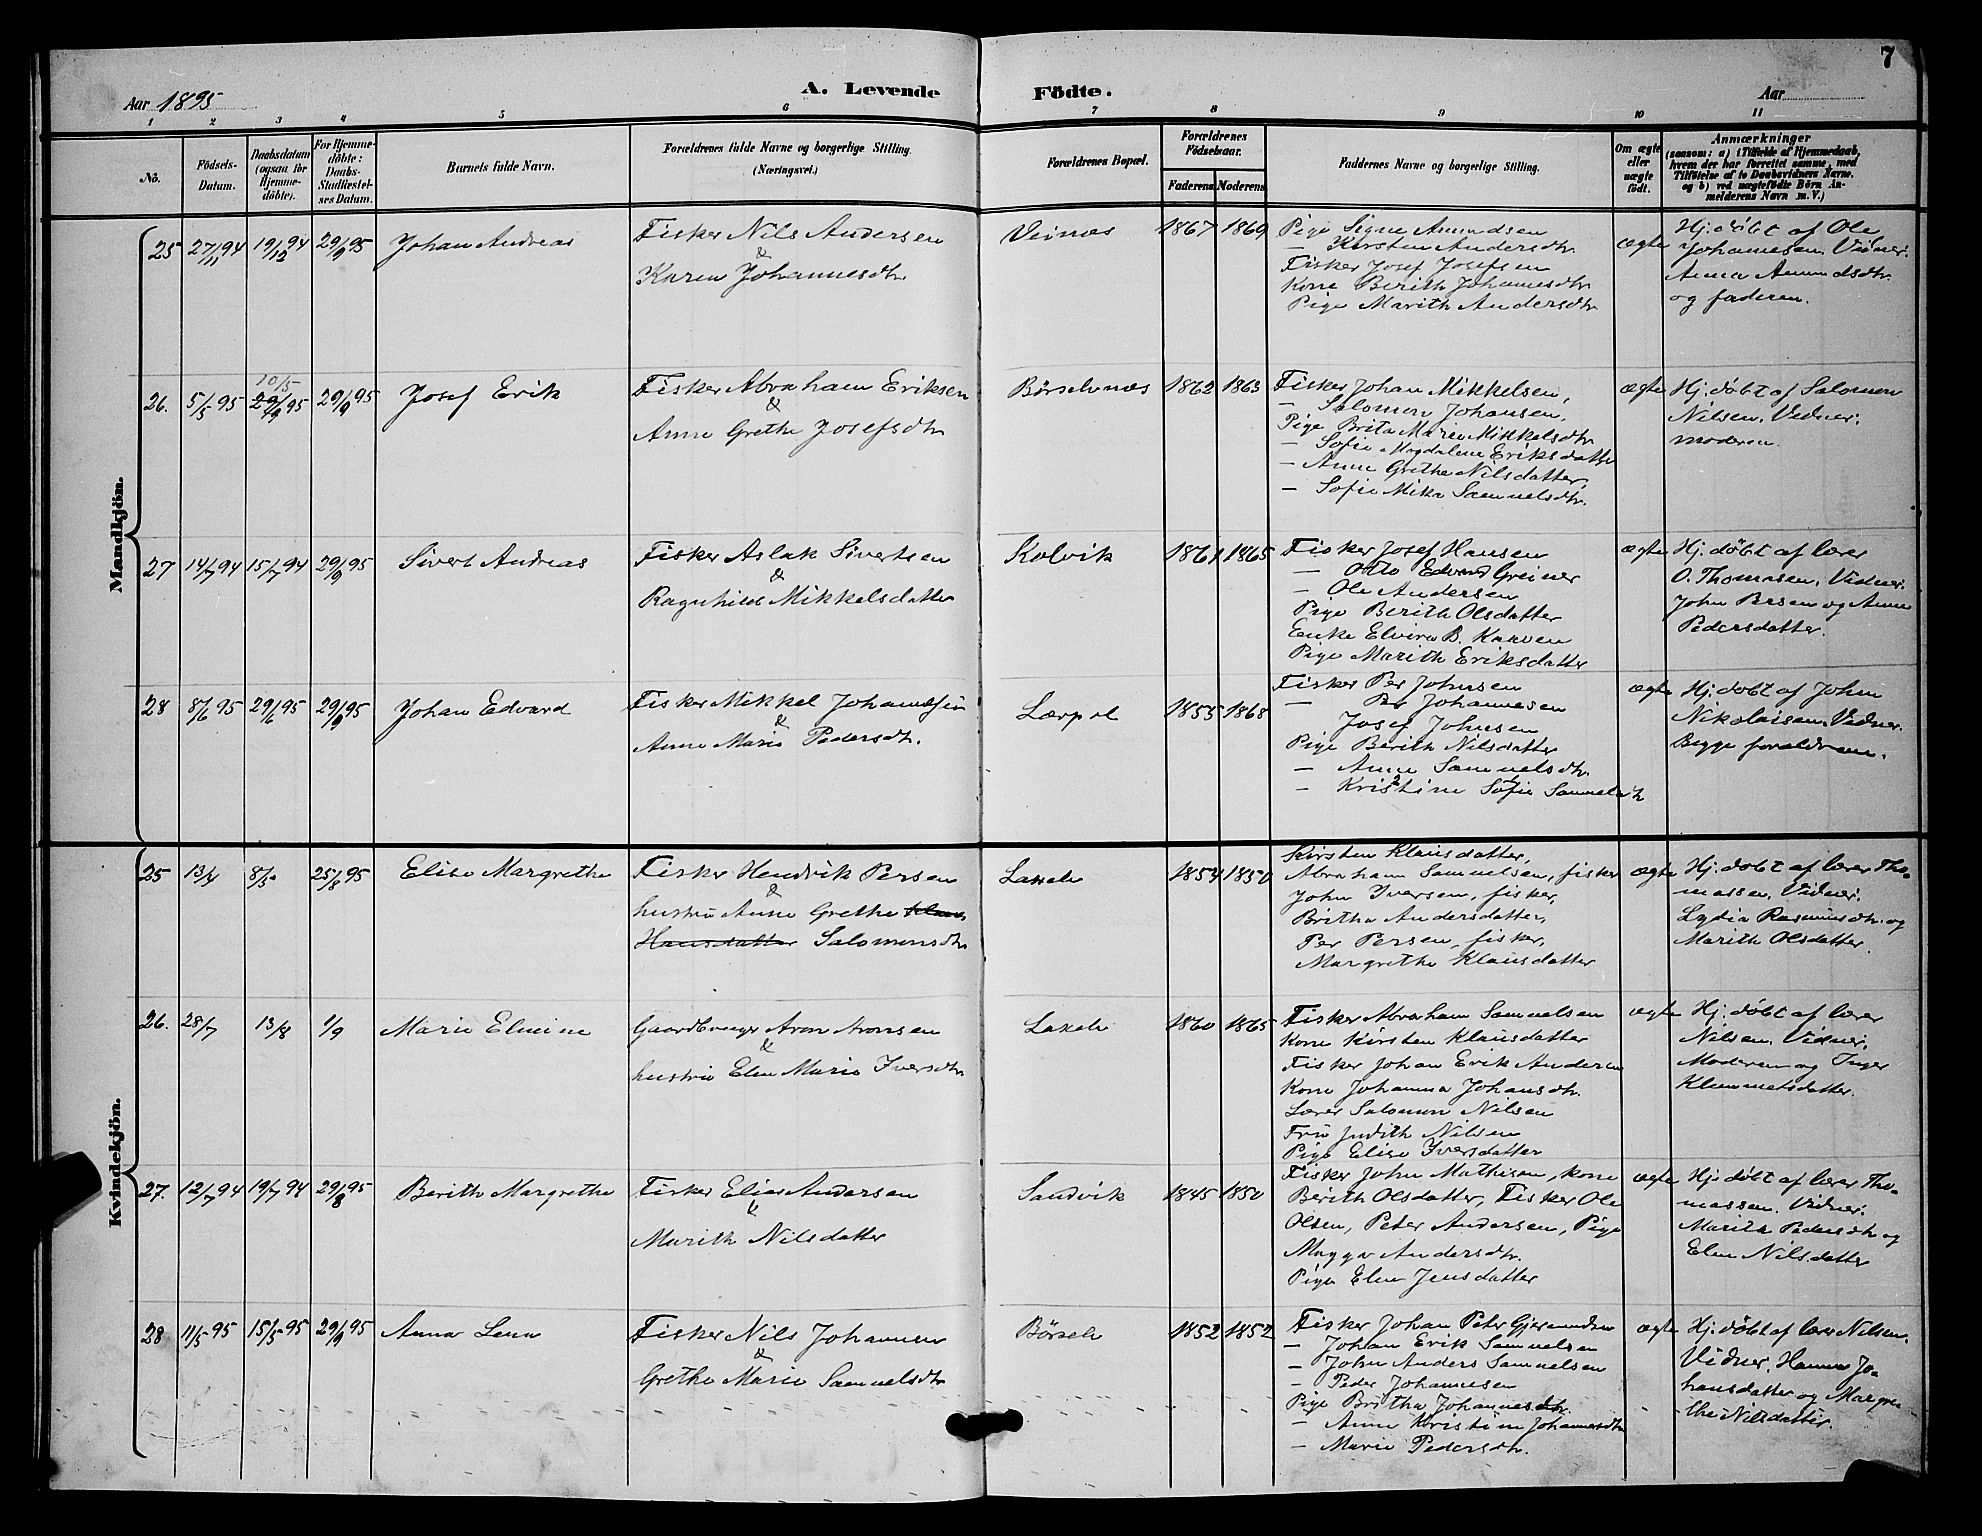 7
Aar 1895
A. Levende Födte.
Aar
1 2 3 4 5 6 7 8 9 10 11
No.
Födsels-Datum.
Daabsdatum (ogsaa for Hjemme-döbte).
For Hjemme-döbte: Daabs-Stadfæstel-ses Datum.
Barnets fulde Navn.
Forældrenes fulde Navne og borgerlige Stilling. (Næringsvei.)
Forældrenes Bopæl.
Forældrenes Födselsaar.
Faderens Moderens
Faddernes Navne og borgerlige Stilling.
Om ægte eller uægte födt.
Anmærkninger
(saasom: a) i Tilfælde af Hjemmedaab,
hvem der har forrettet samme, med
Tilföielse af to Daabsvidners Navne,
og b) ved uægtefödte Börn An-
melderens Navn m. V.)
Mandkjön.
25 27/11 94 19/12 94 29/9 95
Johan Andreas
Fisker Nils Andersen
&
Karen Johannesdtr.
Veinæs
1867 1869
Pige Signe Amundsen
— Kirsten Andersdtr.
Fisker Josef Josefsen
Kone Berith Johannesdtr.
Pige Marith Andersdtr
ægte
Hj. döbt af Ole
Johannesen. Vidner:
Anna Amundsdtr.
og faderen.
26. 5/5 95 10/5 29/9 95 29/9 95
Josef Erik
Fisker Abraham Eriksen
&
Anne Grethe Josefsdtr
Börselvnæs
1862 1863
Fisker Johan Mikkelsen,
— Salomon Johansen,
Pige Brita Marie Mikkelsdtr
— Sofie Magdalene Eriksdatter
— Anne Grethe Nilsdatter,
— Sofie Mika Samuelsdtr.
ægte
Hj. döbt af Salomon
Nilsen. Vidner:
moderen.
27 14/7 94 15/7 94 29/9 95
Sivert Andreas
Fisker Aslak Sivertsen
&
Ragnhild Mikkelsdatter
Kolvik
1861 1865
Fisker Josef Hansen
— Otto Edvard Greiner
— Ole Andersen
Pige Berith Olsdatter
Enke Elvira B. Karven
Pige Marith Eriksdatter
ægte
Hj. döbt af lærer
O. Thomasen. Vidner:
John Persen og Anne
Pedersdatter.
28 8/6 95 29/6 95 29/9 95
Johan Edvard
Fisker Mikkel Johannesen
&
Anne Marie Pedersdtr.
Lærpol
1855 1868
Fisker Per Johnsen
— Per Johannesen
Josef Johnsen
Pige Berith Nilsdatter
— Anne Samuelsdtr.
— Kristine Sofie Samuelsdtr
ægte
Hj. döbt af John
Nikolaisen. Vidner:
Begge forældrene.
Kvindekjön.
25 13/4 8/5 25/8 95
Elise Margrethe
Fisker Hendrik Persen
&
hustru Anne Grethe Klaus
Hansdatter Salomonsdtr
Lakselv
1854 1850
Kirsten Klausdatter,
Abraham Samuelsen, fisker
John Iversen, fisker,
Britha Andersdatter,
Per Persen, fisker,
Margrethe Klausdatter
ægte
Hj. döbt af lærer Tho-
massen. Vidner:
Lydia Rasmusdtr. og
Marith Olsdatter
26. 28/7 13/8 1/9
Marie Elmine
Gaardbruger Aron Aronsen
&
hustru Elen Marie Iversdtr.
Lakselv
1860 1865
Fisker Abraham Samuelsen
Kone Kirsten Klausdatter
Fisker Johan Erik Andersen
Kone Johanna Johansdtr.
Lærer Salomon Nilsen
Fru Judith Nilsen
Pige Elise Iversdatter
ægte
Hj. döbt af lærer
Nilsen. Vidner:
Moderen og Inger
Klemmetsdatter.
27. 12/7 94 19/7 94 29/8 95
Berith Margrethe
Fisker Elias Andersen
&
Marith Nilsdatter
Sandvik
1845 1850
Fisker John Mathisen, kone
Berith Olsdatter, Fisker Ole
Olsen, Peter Andersen, Pige
Magga Andersdtr.
Pige Elen Jensdatter
ægte
Hj. döbt af lærer Tho-
massen. Vidner:
Marith Pedersdtr og
Elen Nilsdatter
28 11/5 95 15/5 95 29/9 95
Anna Lena
Fisker Nils Johannesen
&
Grethe Marie Samuelsdtr
Börselv
1852 1852
Fisker Johan Peter Gjermundsen
— Johan Erik Samuelsen
— John Anders Samuelsen
— Peder Johannesen
Pige Britha Johannesdtr.
— Anne Kristine Johannesdtr
— Marie Pedersdtr.
ægte
Hj. döbt af lærer Nilsen.
Vidner: Hanna Jo-
hansdatter og Margre-
the Nilsdatter.